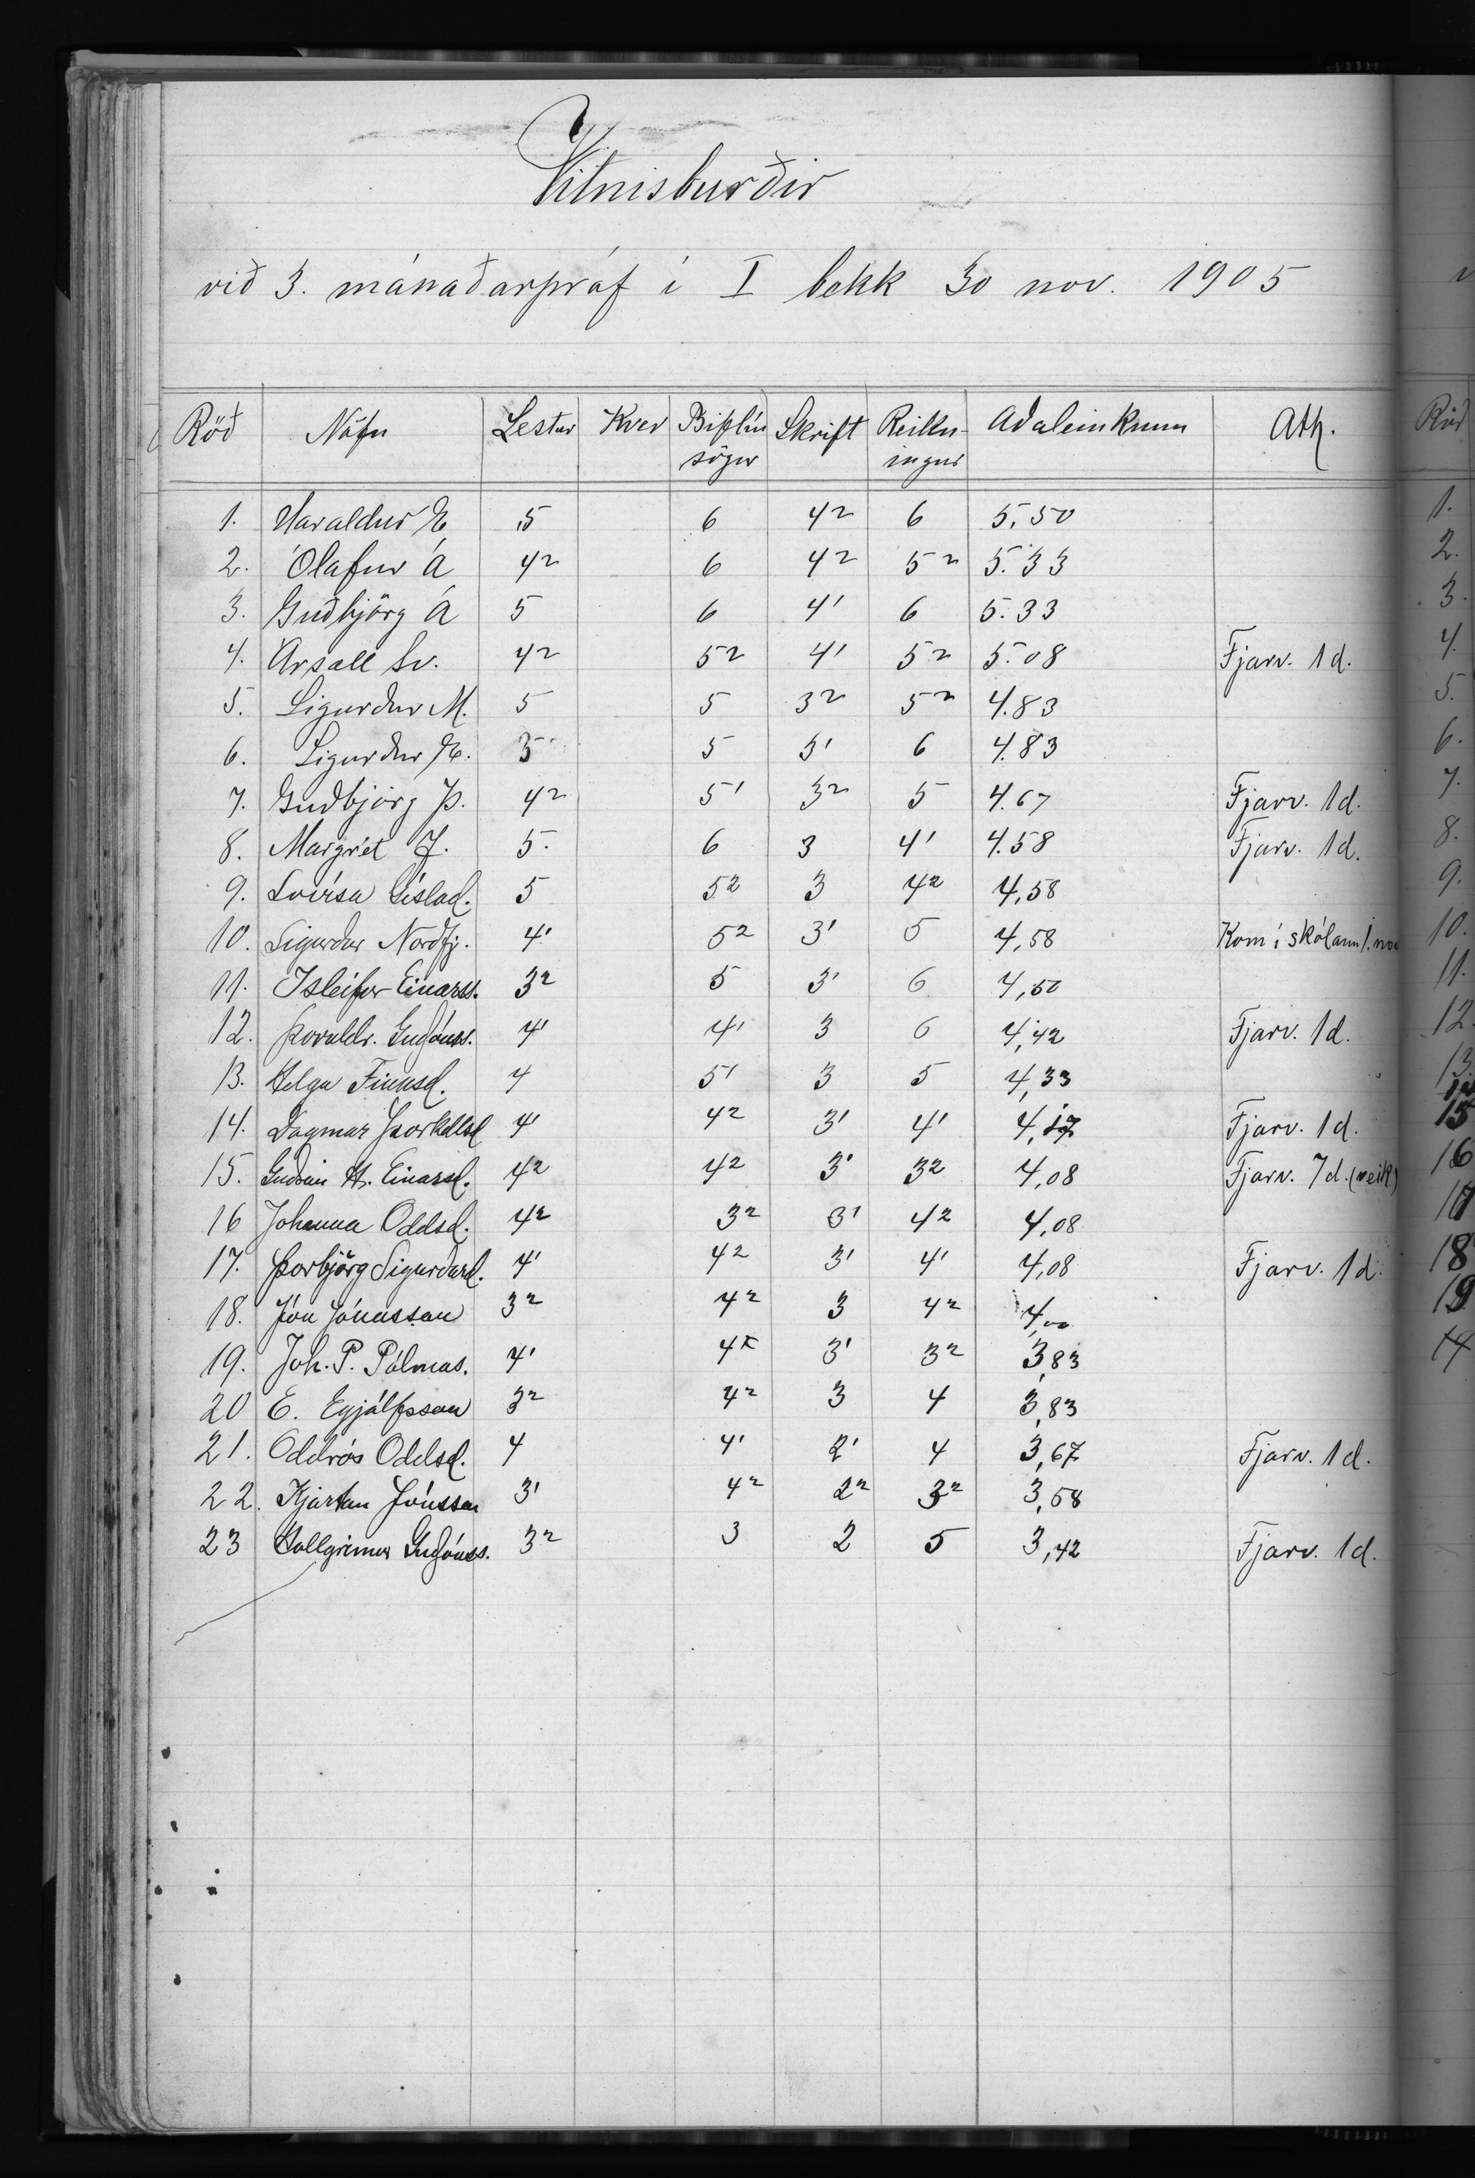 Vitnisburðir
við 3. mánaðarpróf í I bekk 30 nov. 1905
Röð Nöfn Lestur Kver Biblíu Skrift Reikn- Aðaleinkunn Ath.
sögur ingur
1. Haraldur E 5 6 4² 6 5.50
2. Ólafur Á 4² 6 4² 5² 5.33
3. Guðbjörg Á 5 6 4' 6 5.33
4. Ársæll Sv. 4² 5² 4' 5² 5.08 Fjarv. 1 d.
5. Sigurður M. 5 5 3² 5² 4.83
6. Sigurður E. 5 5 3' 6 4.83
7. Guðbjörg Þ. 4² 5' 3² 5 4.67 Fjarv. 1 d.
8. Margrét J. 5. 6 3 4' 4.58 Fjarv. 1 d.
9. Lovísa Gíslad. 5 5² 3 4² 4,58
10. Sigurður Norðfj. 4' 5² 3' 5 4,58 Kom í skólann 1. nov
11. Isleifur Einarss. 3² 5 3' 6 4,50
12. Þorvaldr. Guðjónss. 4' 4' 3 6 4,42 Fjarv. 1 d.
13. Helga Finnsd. 4 5' 3 5 4,33
14. Dagmar Þorkellsd 4' 4² 3' 4' 4,17 Fjarv. 1 d.
15. Guðrún H. Einarsd. 4² 4² 3' 3² 4,08 Fjarv. 7 d. (veik)
16 Johanna Oddsd. 4² 3² 3' 4² 4,08
17. Þorbjörg Sigurðard. 4' 4² 3' 4' 4,08 Fjarv. 1 d.
18. Jón Jónasson 3² 4² 3 4² 4,00
19. Joh. P. Pálmas. 4' 4² 3' 3² 3,83
20 E. Eyjálfsson 3² 4² 3 4 3,83
21. Oddrós Oddsd. 4 4' 2' 4 3,67 Fjarv. 1 d.
22. Kjartan Jónsson 3' 4² 2² 3² 3,58
23 Hallgrimur Guðjónss. 3² 3 2 5 3,42 Fjarv. 1 d.
Röð
1.
2.
3.
4.
5.
6.
7.
8.
9.
10.
11.
12.
13.
14
15
16
17
18
19
14